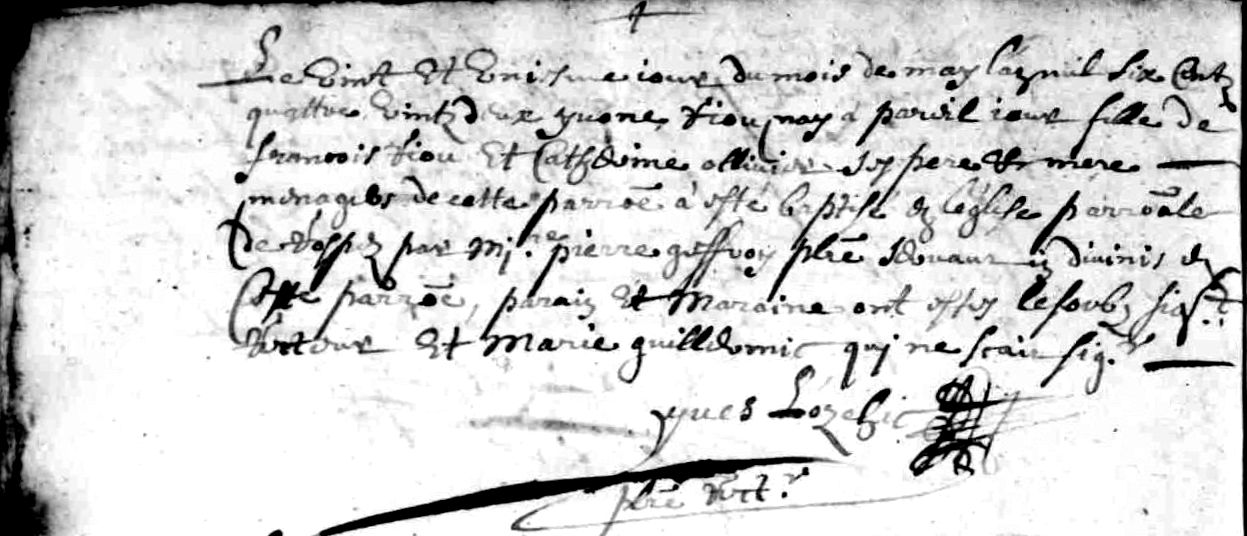 Le vint et vniesme iour du mois de may l'an mil six cent
quattre vintz deux yuone riou nay a pareil iour fille de
francois riou et Catherine ollivier ses pere et mere
menagers de cette parroē a esté baptisé en l'église parroāle
de par Mi.re pierre geffroy pbrē in divinis en
Cette parroē, parain et Maraine ont estes le soubz sig.t
recteur et Marie guillermic qui ne scait sig.r
yues Lozehic
pbrē rect.r